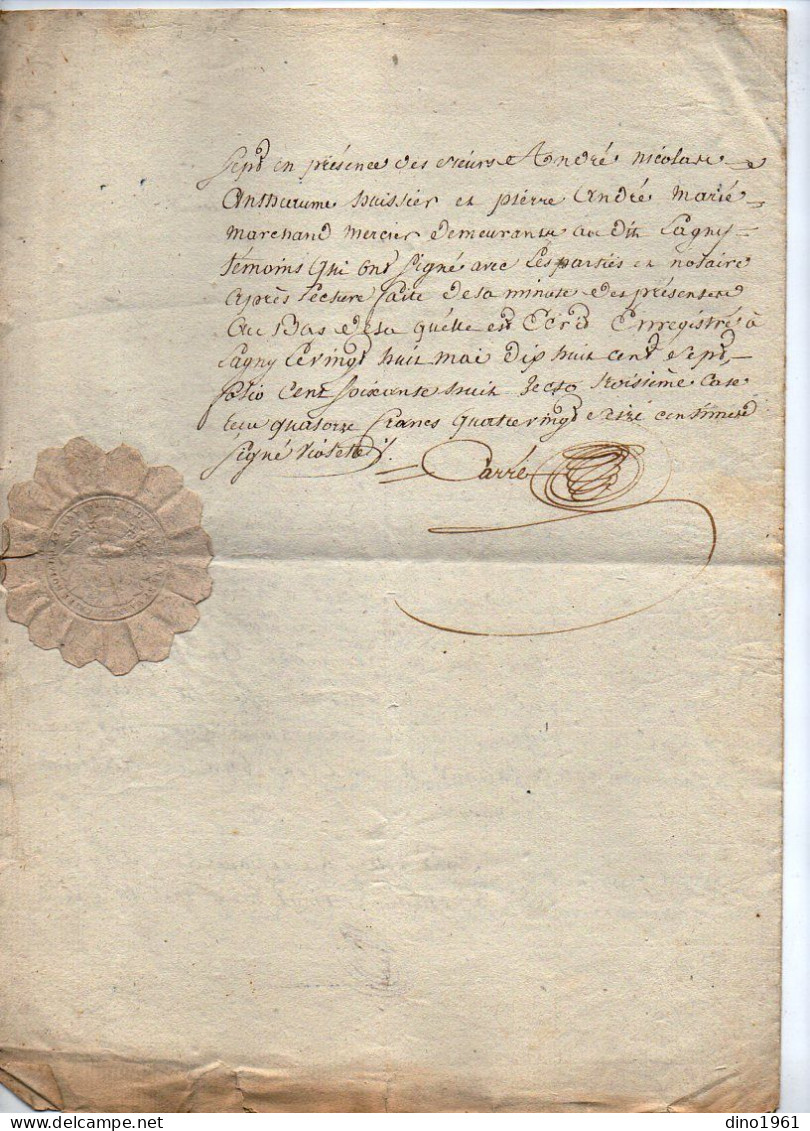 Sept en présence des sieurs André nicolas
huissier et pierre andré marie
marchand mercier demeurants au dit Lagny
témoins qui ont signé avec les parties et notaire
après lecture faite de la minute des présentes
au bas de la quelle est écrit Enregistré à
Lagny le vingt huit mai dix huit cent sept,
folio cent soixante huit recto troisième case
reçu quatorze francs quatrevingt seize centimes
signé Violette /.
Carré
dino1961